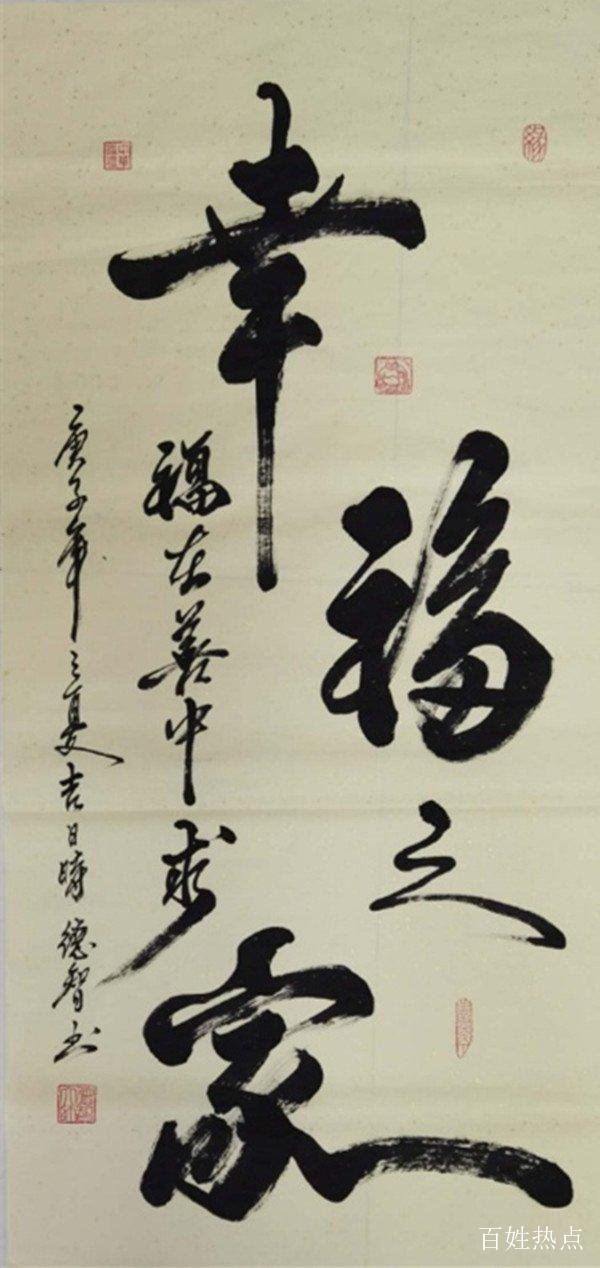 幸福之家
福在善中求
庚子年之夏吉日晴德智书
百姓热点